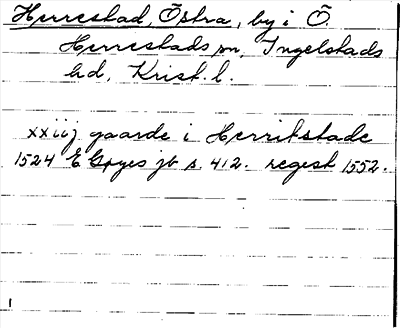 Herrestad, Östra, by i Ö.
Herrestads sn, Ingelstads
hd, Krist. l.
xxiij gaarde i Herrikstade
1524 E Gøyes jb s. 412. regest 1552.
1